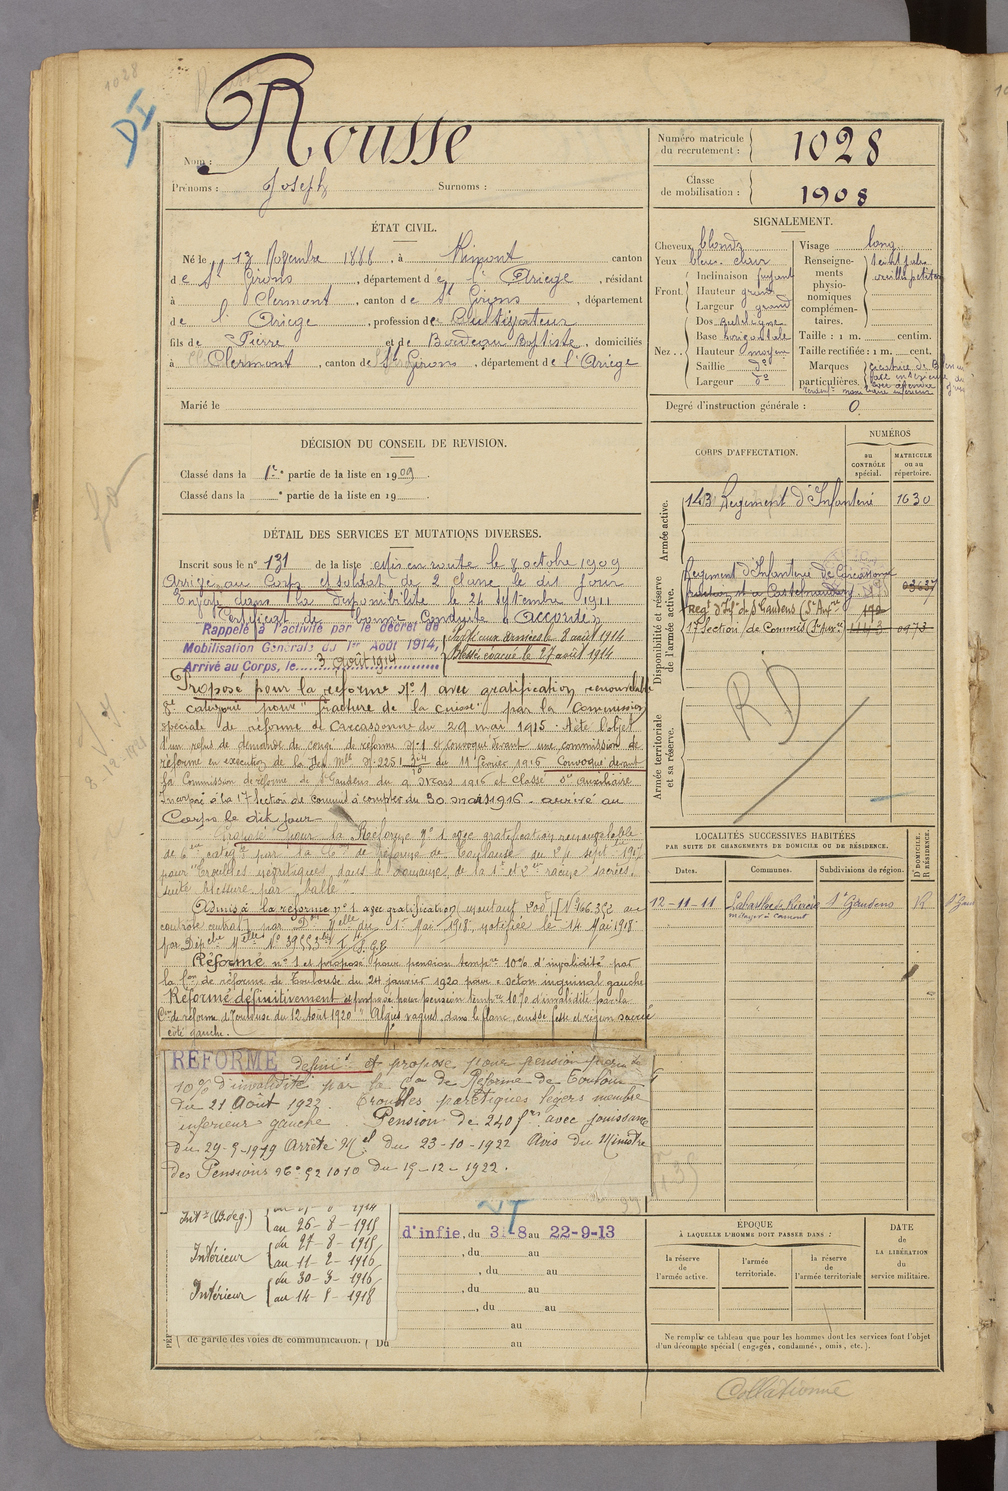 1028
DI
Nom : Rousse
Prénoms : Joseph Surnoms :
Numéro matricule du recrutement : 1028
Classe de mobilisation : 1908
ÉTAT CIVIL.
Né le 13 Novembre 1888, à Rimont canton
de St Girons, département de l'Ariège, résidant
à Clermont, canton de St Girons, département
de l'Ariège, profession de Cultivateur
fils de Pierre et de Baptiste, domiciliés
à Clermont, canton de St Girons, département de l'Ariège
Marié le
SIGNALEMENT.
Cheveux blonds
Yeux bleus clair
Front. Inclinaison fuyant
Hauteur grand
Largeur grand
Nez.. Dos
Base horizontale
Hauteur moyen
Saillie do
Largeur do
Visage long
Renseignements physionomiques complémentaires.
Taille : 1 m. centim.
Taille rectifiée : 1 m. cent.
Marques particulières.
cicatrice de
Degré d'instruction générale : 0.
DÉCISION DU CONSEIL DE REVISION.
Classé dans la 1re partie de la liste en 1909.
Classé dans la partie de la liste en 19
DÉTAIL DES SERVICES ET MUTATIONS DIVERSES.
Inscrit sous le n° 131 de la liste mis en route le 8 octobre 1909
Arrivé au Corps et soldat de 2 classe le dit jour
Envoyé dans la disponibilité le 24 septembre 1911
Certificat de bonne conduite "Accordé"
Rappelé à l'activité par le décret de
Mobilisation Générale du 1er Août 1914,
Arrivé au Corps, le 3 août 1914
aux armées le 8 août 1914
Blessé évacué le 27 août 1914
Proposé pour la réforme N° 1 avec gratification renouvelable
catégorie pour "fracture de la cuisse" par la Commission
spéciale de réforme de Carcassonne du 29 mai 1915. A été l'objet
d'un refus de demande de congé de réforme N° 1 et convoqué devant une commission de
réforme en exécution de la du 11 février 1916 Convoqué devant
la Commission de réforme de St Gaudens du 9 mars 1916 et classé Sce auxiliaire
Incorporé à la 17e Section de commis à compter du 30 mars 1916. arrivé au
Corps le dit jour
Proposé pour la Réforme n° 1 avec gratification renouvelable
de catégie par la Con de Réforme de Toulouse du sept 1917
pour "troubles névritiques dans le domaine de la 1re et 2me racine sacrées,
suite blessure par balle".
Admis à la réforme n° 1 avec gratification
du 1er Mai 1918, notifiée le 14 Mai 1918
Réformé n° 1 et proposé pour pension tempre 10% d'invalidité par
la Con de réforme de Toulouse du 24 janvier 1920 pour "seton inguinal gauche
Réformé définitivement et proposé pour pension tempre 10% d'invalidité par la
Con de réforme de Toulouse du 12 août 1920 "Algies vagues, dans le flanc, cuisse fesse et région sacrée
côté gauche.
RÉFORMÉ définit et proposé pour pension
10% d'invalidité par la Con de Réforme de Toulouse
du 21 Août 1922. Troubles parétiques légers membre
inférieur gauche. Pension de 240 frs avec jouissance
du 29-9-1919 Arrêté Mel du 23-10-1922 Avis du Ministre
des Pensions du 19-12-1922.
CORPS D'AFFECTATION.
NUMÉROS
au CONTRÔLE spécial.
MATRICULE ou au répertoire.
Armée active.
143 Régiment d'Infanterie 1030
Disponibilité et réserve de l'armée active.
Régiment d'Infanterie de Carcassonne
Regt d'Infie de St Gaudens (Sce Auxre
17 Section de Commis (Sce auxre 1143 0973
Armée territoriale et sa réserve.
RD
LOCALITÉS SUCCESSIVES HABITÉES
PAR SUITE DE CHANGEMENTS DE DOMICILE OU DE RÉSIDENCE.
Dates. Communes. Subdivisions de région. D. DOMICILE. R. RÉSIDENCE.
12-11-11 Labarthe de Rivière St Gaudens R
Intr
au 26-8-1915
Intérieur du 27-8-1915
au 11-2-1916
Intérieur du 30-3-1916
au 14-5-1918
d'infie, du 3-8 au 22-9-13
, du au
, du au
, du au
, du au
au
de garde des voies de communication. Du au
ÉPOQUE
À LAQUELLE L'HOMME DOIT PASSER DANS :
la réserve de l'armée active.
l'armée territoriale.
la réserve de l'armée territoriale
DATE
DE LA LIBÉRATION
du service militaire.
Ne remplir ce tableau que pour les hommes dont les services font l'objet
d'un décompte spécial (engagés, condamnés, omis, etc.).
Collationné